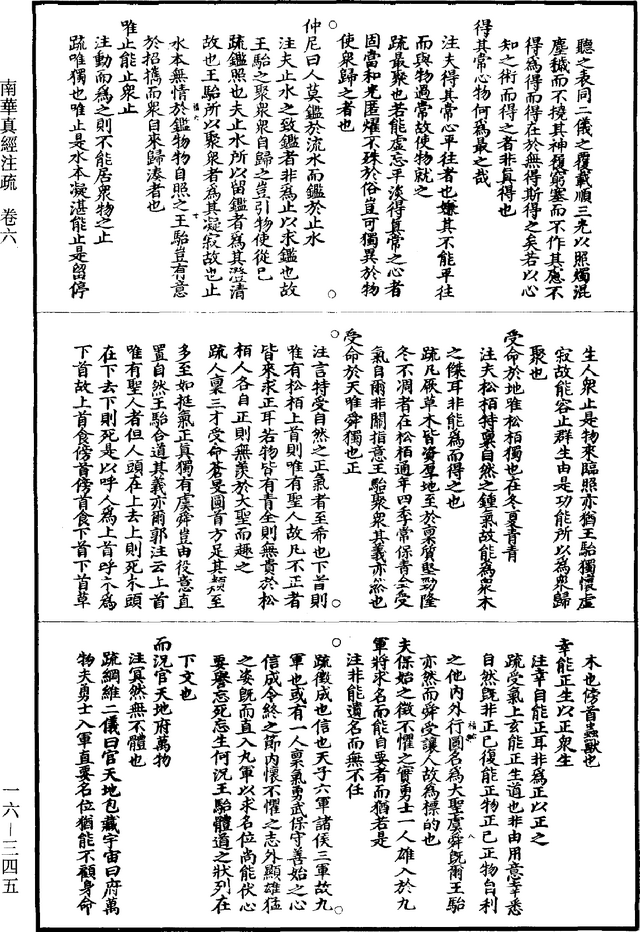 聽之表同二儀之覆載順三光以照燭混
塵穢而不撓其神履窮塞而不忤其慮不
得為得而得在於無得斯得之矣若以心
知之術而得之者非真得也
得其常心物何為最之哉
注夫得其常心平往者也嫌其不能平往
而與物過常故使物就之
疏最聚也若能虛忘平淡得真常之心者
固當和光匿耀不殊於俗豈可獨異於物
使衆歸之者也
仲尼曰人莫鑑於流水而鑑於止水
注夫止水之致鑑者非為止以求鑑也故
王駘之聚衆衆自歸之豈引物使從己
疏鑑照也夫止水所以留鑑者為其澄清
故也王駘所以聚衆者為其凝寂故也止
水本無情於鑑物物自照之王駘豈有意
於招攜而衆自來歸湊者也
唯止能止衆止
注動而為之則不能居衆物之止
疏唯獨也唯止是水本凝湛能止是留停
生人衆止是物來臨照亦猶王駘獨懷虛
寂故能容止群生由是功能所以為衆歸
聚也
受命於地唯松柏獨也在冬夏青青
注夫松柏特稟自然之鍾氣故能為衆木
之傑耳非能為而得之也
疏凡厥草木皆資厚地至於稟質堅勁隆
冬不凋者在松柏通年四季常保青全受
氣自爾非關指意王駘聚衆其義亦然也
受命於天唯舜獨也正
注言特受自然之正氣者至希也下首則
唯有松柏上首則唯有聖人故凡不正者
皆來求正耳若物皆有青全則無貴於松
柏人各自正則無羨於大聖而趣之
疏人稟三才受命蒼旻圓首方足其類至
多至如挺氣正真獨有虞舜豈由役意直
置自然王駘合道其義亦爾郭注云上首
唯有聖人者但人頭在上去上則死木頭
在下去下則死是以呼人為上首呼木為
下首故上首食傍首傍首食下首下首草
木也傍首蟲獸也
幸能正生以正衆生
注幸自能正耳非為正以正之
疏受氣上玄能正生道也非由用意幸悉
自然旣非正己復能正物正己正物自利
之他內外行圓名為大聖虞舜旣爾王駘
亦然而舜受讓人故為標的也
夫保始之徵不懼之實勇士一人雄入於九
軍將求名而能自要者而猶若是
注非能遺名而無不任
疏徵成也信也天子六軍諸侯三軍故九
軍也或有一人稟氣勇武保守善始之心
信成令終之節內懷不懼之志外顯雄猛
之姿旣而直入九軍以求名位尚能伏心
要譽忘死忘生何況王駘體道之狀列在
下文也
而況官天地府萬物
注冥然無不體也
疏綱維二儀曰官天地包藏宇宙曰府萬
物夫勇士入軍直要名位猶能不顧身命
南華真經注疏　卷六
一六—三四五